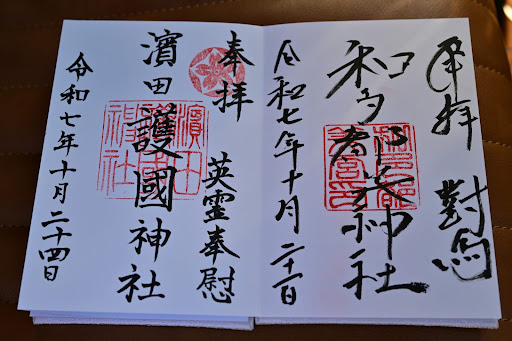 奉拝 對馬
和多都美神社
令和七年十月二十一日
奉拝 英霊奉慰
濱田護國神社
令和七年十月二十四日